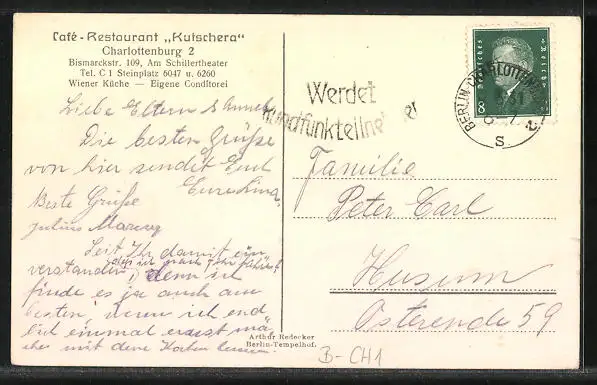 Café - Restaurant „Kutschera"
Charlottenburg 2
Bismarckstr. 109, Am Schillertheater
Tel. C 1 Steinplatz 6047 u. 6260
Wiener Küche — Eigene Conditorei
Liebe Eltern &
Die besten Grüße
von hier sendet Euch
Eure Lina.
Beste Grüße
Julius
Seit Ihr damit ein
verstanden, denn ich
finde es ja auch am
besten, wenn ich end
lich einmal ernst mä
che mit dem Kochen lernen.
Arthur Redecker
Berlin-Tempelhof.
Deutsches Reich
8
Werdet
Rundfunkteilnehmer
BERLIN-CHARLOTTENBURG
S.
Familie
Peter Carl
Husum
Osterende 59
B-CH1